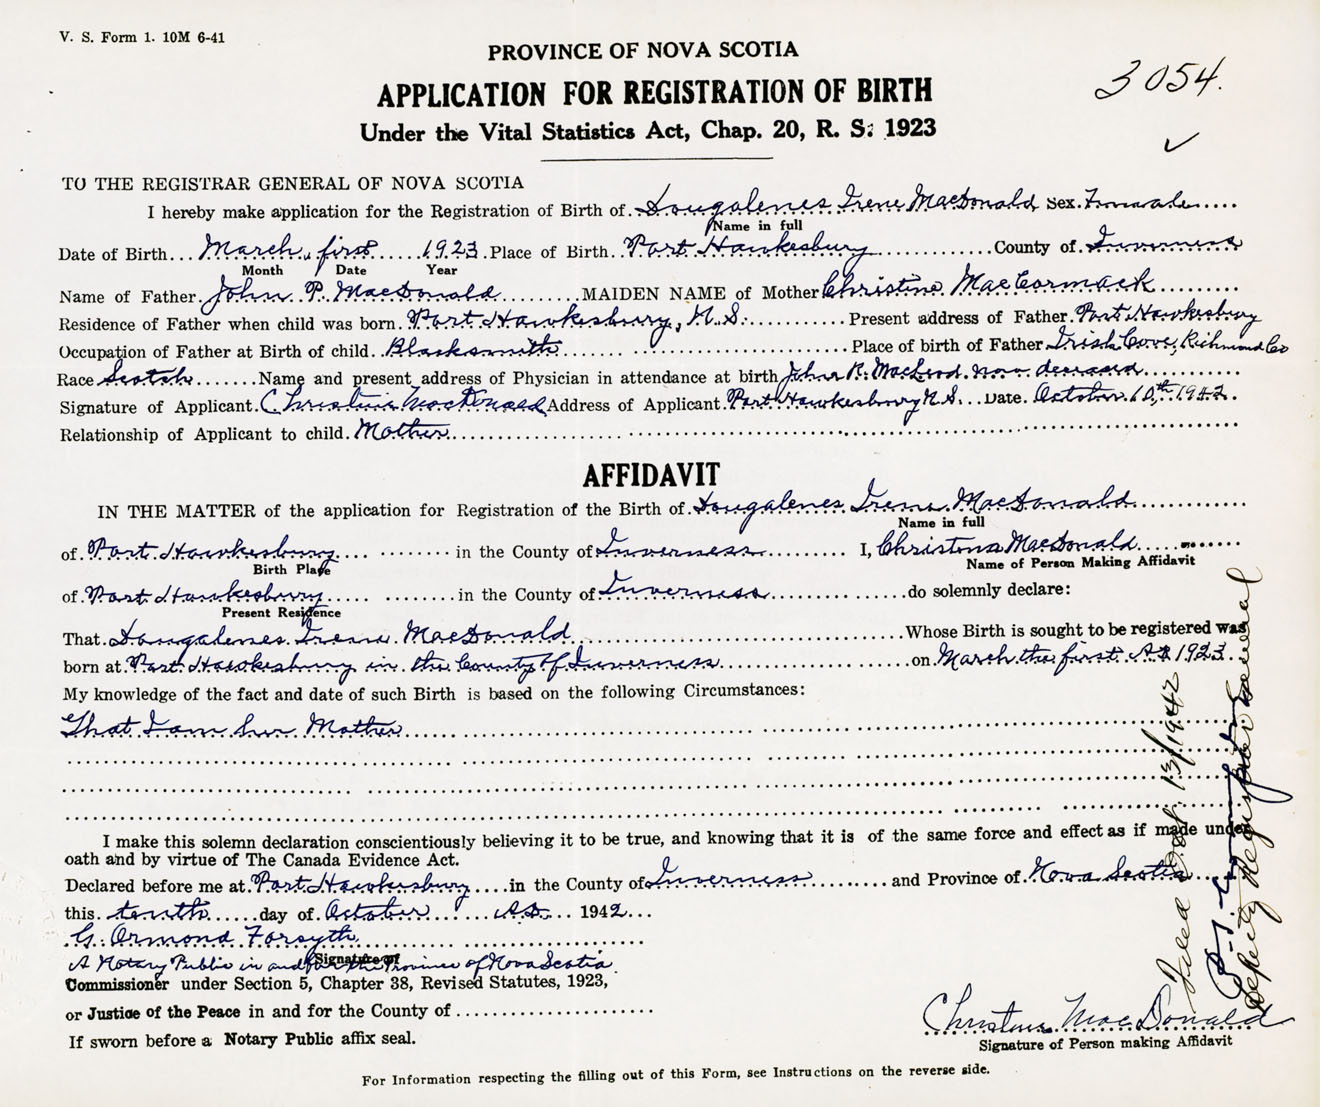 V. S. Form 1. 10M 6-41
PROVINCE OF NOVA SCOTIA
3054.
APPLICATION FOR REGISTRATION OF BIRTH
Under the Vital Statistics Act, Chap. 20, R. S. 1923
TO THE REGISTRAR GENERAL OF NOVA SCOTIA
I hereby make application for the Registration of Birth of Dougalenes Irene MacDonald Sex Female
Name in full
Date of Birth March first 1923 Place of Birth Port Hawkesbury County of Inverness
Month Date Year
Name of Father John P. MacDonald MAIDEN NAME of Mother Christine MacCormack
Residence of Father when child was born Port Hawkesbury, N.S. Present address of Father Port Hawkesbury
Occupation of Father at Birth of child Blacksmith Place of birth of Father Irish Cove, Richmond Co
Race Scotch Name and present address of Physician in attendance at birth John R. MacLeod now deceased
Signature of Applicant Christine MacDonald Address of Applicant Port Hawkesbury N.S. Date October 10th 1942
Relationship of Applicant to child Mother
AFFIDAVIT
IN THE MATTER of the application for Registration of the Birth of Dougalenes Irene MacDonald
Name in full
of Port Hawkesbury in the County of Inverness I, Christina MacDonald
Birth Place Name of Person Making Affidavit
of Port Hawkesbury in the County of Inverness do solemnly declare:
Present Residence
That Dougalenes Irene MacDonald Whose Birth is sought to be registered was
born at Port Hawkesbury in the County of Inverness on March the first A.D. 1923
My knowledge of the fact and date of such Birth is based on the following Circumstances:
That I am her Mother
I make this solemn declaration conscientiously believing it to be true, and knowing that it is of the same force and effect as if made under
oath and by virtue of The Canada Evidence Act.
Declared before me at Port Hawkesbury in the County of Inverness and Province of Nova Scotia
this tenth day of October A.D. 1942
G. Ormond Forsyth
Signature of
A Notary Public in and for the Province of Nova Scotia
Commissioner under Section 5, Chapter 38, Revised Statutes, 1923,
or Justice of the Peace in and for the County of
If sworn before a Notary Public affix seal.
Christina MacDonald
Signature of Person making Affidavit
For Information respecting the filling out of this Form, see Instructions on the reverse side.
Filed Oct. 13/1942
Deputy Registrar General